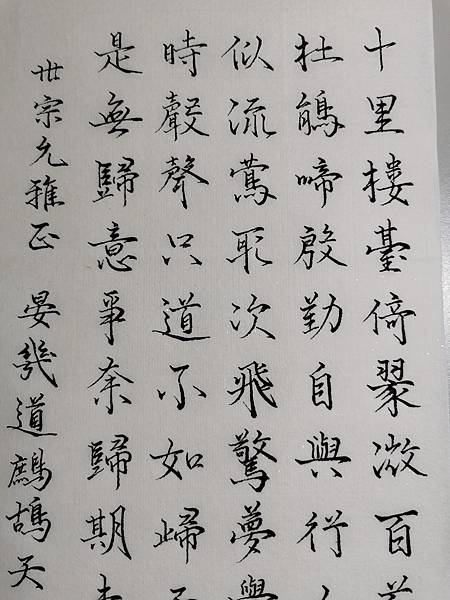 十里樓臺倚翠微百
杜鵑啼殷勤自與行
似流鶯取次飛驚夢
時聲聲只道不如歸
是無歸意爭奈歸期
世宗允雅正 晏幾道鷓鴣天